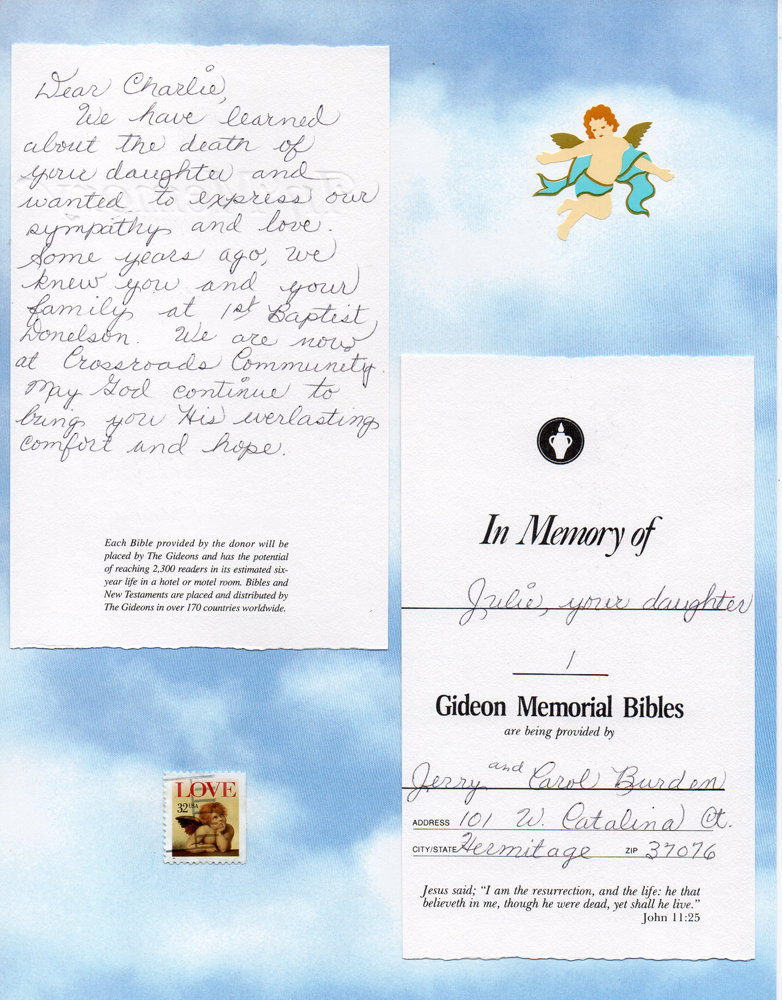 Dear Charlie,
We have learned
about the death of
your daughter and
wanted to express our
sympathy and love.
Some years ago, we
knew you and your
family at 1st Baptist,
Donelson. We are now
at Crossroads Community.
May God continue to
bring you His everlasting
comfort and hope.
Each Bible provided by the donor will be
placed by The Gideons and has the potential
of reaching 2,300 readers in its estimated six-
year life in a hotel or motel room. Bibles and
New Testaments are placed and distributed by
The Gideons in over 170 countries worldwide.
LOVE
32 USA
In Memory of
Julie, your daughter
1
Gideon Memorial Bibles
are being provided by
Jerry and Carol Burden
ADDRESS 101 W. Catalina Ct.
CITY/STATE Hermitage ZIP 37076
Jesus said; "I am the resurrection, and the life: he that
believeth in me, though he were dead, yet shall he live."
John 11:25